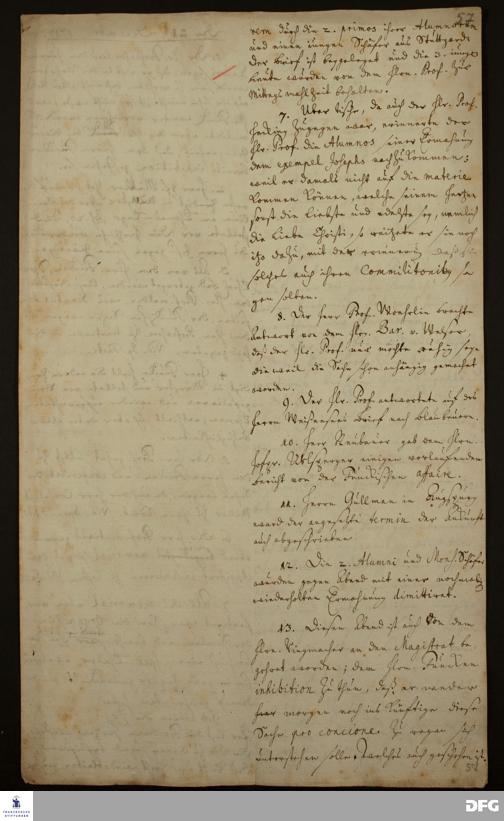 57
rem durch die 2. primos ihrer Alumnorum
und einen jungen Schäfer aus Stuttgardt
der brief ist beygeleget und die 3. junge
Leute wurden von dem Hrn. Prof. zur
Mittags mahlzeit behalten.
7. Über tische, da auch der Hr. Prof.
zugegen war, erinnerte der
Hr. Prof. die Alumnos seiner Ermahnung
dem exempel Josephs nachzukommen;
weil er damals nicht auf die materie
kommen können, welche seinem Hertzen
sonst die liebste und edelste sey, nemlich
die Liebe Christi, so er sie noch
dazu, mit der daß sie
solches auch ihren Commilitonibus sa
gen solten.
8. Der Herr Prof. Woehrlin brachte
Antwort von dem Hrn. Bar. v. Welser,
daß der Hr. Prof. nur möchte ruhig seyn
die weil die Sache schon anhängig gemacht
worden.
9. Der Hr. Prof. antwortete auf des
Herrn Weißensees brief nach blaubeuern.
10. Herr Neubauer gab dem Hrn.
Hofpr. Urlsperger einigen vorlaufenden
bericht von der Funckischen affaire.
11. Herrn Güllman in
ward der angesetzte termin der Ankunft
auch abgeschrieben
12. Die 2. Alumni und Mons. Schäfer
wurden gegen Abend mit einer nochmals
wiederholten Ermahnung dimittiret.
13. Diesen Abend ist auch von dem
Hrn. Ringmacher an den Magistrat be-
gehret worden; dem Hrn. Funcken
inhibition zu thun, daß er weder
morgen noch ins künftige diese
Sache pro concione zu regen sich
unterstehen solle, welches auch geschehen ist.
FRANCKESCHE
STIFTUNGEN
DFG